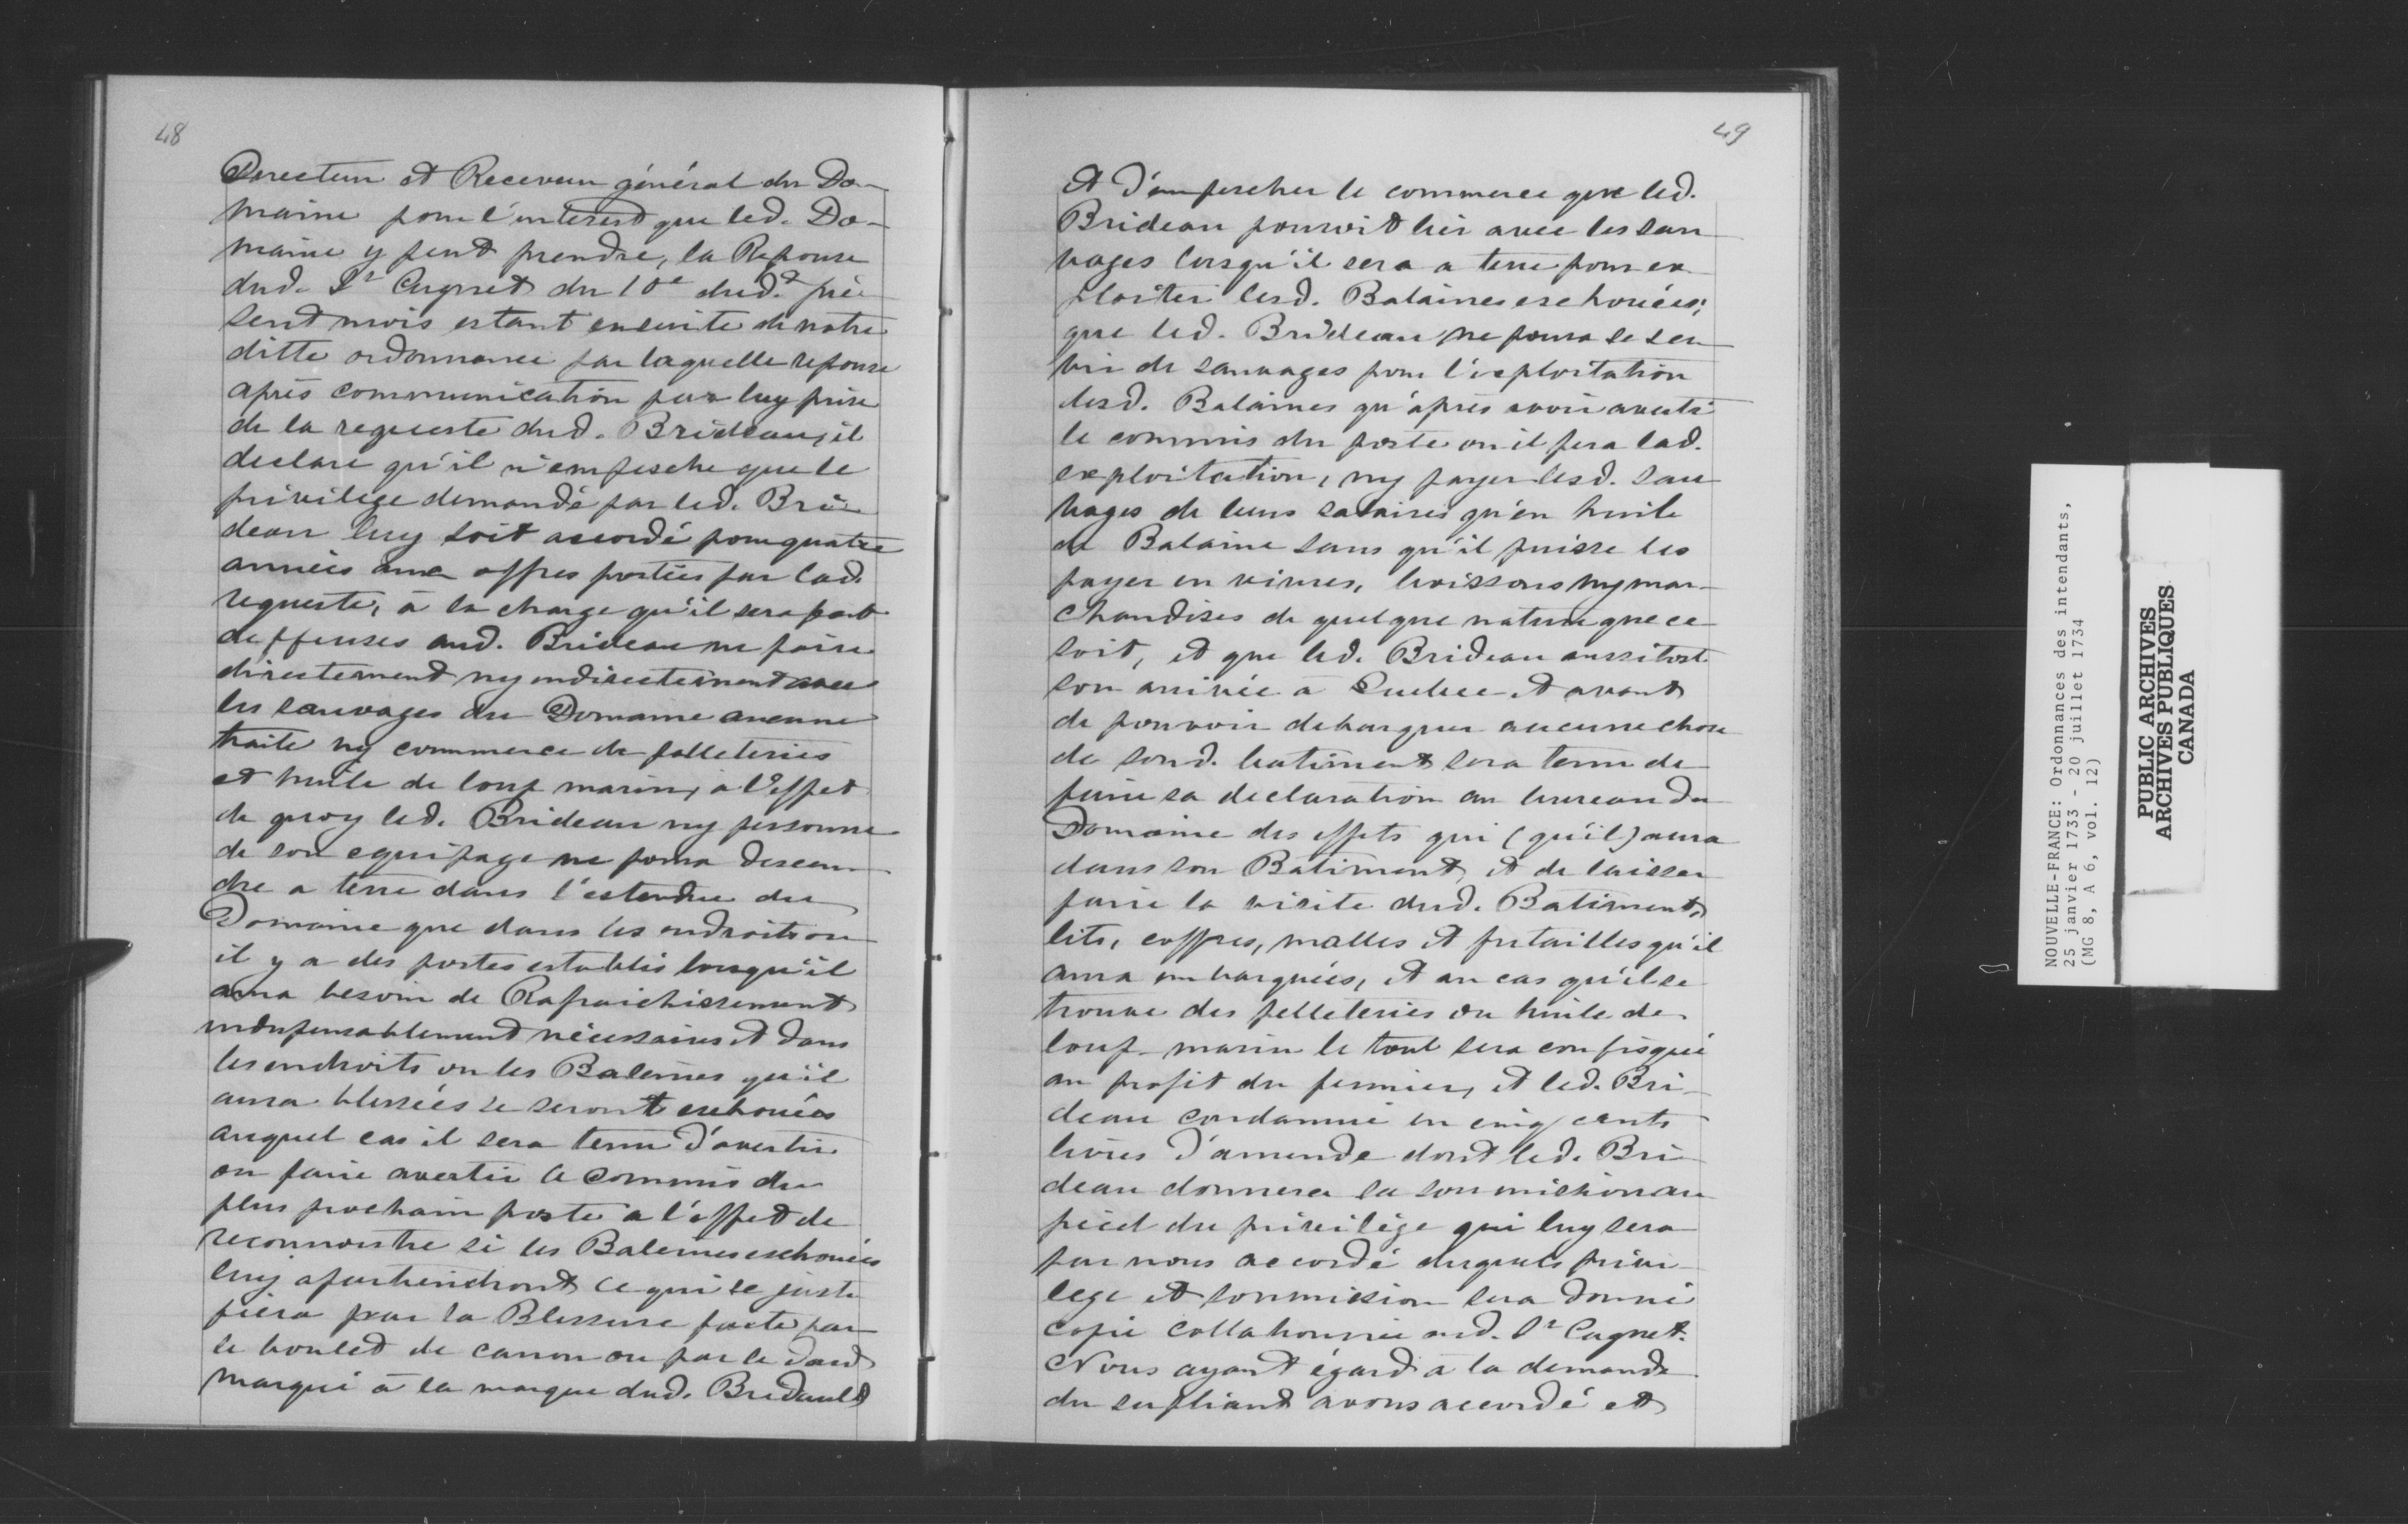 48
Directeur et Receveur général du Do-
maine pour l'interest que led. Do-
maine y peut prendre, la Reponse
dud. Sr Cugnet du 10e dud.t pré
sent mois estant ensuite de notre
ditte ordonnance par laquelle reponse
après communication par luy prise
de la requeste dud. Brideau, il
declare qu'il n'empesche que le
privilege demandé par led. Bri-
deau luy soit accordé pour quatre
années aux offres portées par lad.
requeste, à la charge qu'il sera fait
deffenses aud. Brideau ne faire
directement ny indirectement avec
les sauvages du Domaine aucune
traite ny commerce de pelleteries
et huile de loup marin, a l'effet
de quoy led. Brideau ny personne
de son equipage ne poura descen
dre a terre dans l'estendue du
Domaine que dans les endroits ou
il y a des postes establis lorsqu'il
aura besoin de Rafraichissement
indispensablement nécessaires et dans
les endroits ou les Baleines qu'il
aura blessées se seront eschouées
auquel cas il sera tenu d'avertir
ou faire avertir le commis du
plus prochain poste a l'effet de
reconnoistre si les Baleines eschouées
luy apartiendront ce qui se justi
fiera par la Blessure faite par
le boulet de canon ou par le dard
marqué à la marque dud. Bridault
49
et d'empescher le commerce que led.
Brideau pouroit lier avec les sau
vages lorsqu'il sera a terre pour ex
ploiter lesd. Balaines eschouées;
que led. Brideau ne poura se ser
vir de sauvages pour l'exploitation
desd. Balaines qu'après avoir averti
le commis du poste ou il fera lad.
exploitation, ny payer lesd. sau
vages de leurs salaires qu'en huile
de Balaine sans qu'il puisse les
payer en vivres, boissons ny mar-
chandises de quelque nature que ce
soit, et que led. Brideau aussitost
son arrivée à Quebec et avant
de pouvoir debarquer aucune chose
de sond. batiment sera tenu de
faire sa declaration au bureau du
Domaine des effets qui (qu'il) aura
dans son Batiment, et de laisser
faire la visite dud. Batiment,
lits, coffres, malles et futailles qu'il
aura embarquées, et au cas qu'il se
trouve des pelleteries ou huile de
loup-marin le tout sera confisqué
au profit du fermier, et led. Bri-
deau condamné en cinq cents
livres d'amende dont led. Bri-
deau donnera sa soumission au
pied du privilège qui luy sera
par nous accordé desquels privi-
lege et soumission sera donné
copie collationnée aud. Sr Cugnet.
Nous ayant égard à la demande
du supliant avons accordé et
NOUVELLE-FRANCE: Ordonnances des intendants,
25 janvier 1733 - 20 juillet 1734
(MG 8, A 6, vol. 12)
PUBLIC ARCHIVES
ARCHIVES PUBLIQUES
CANADA